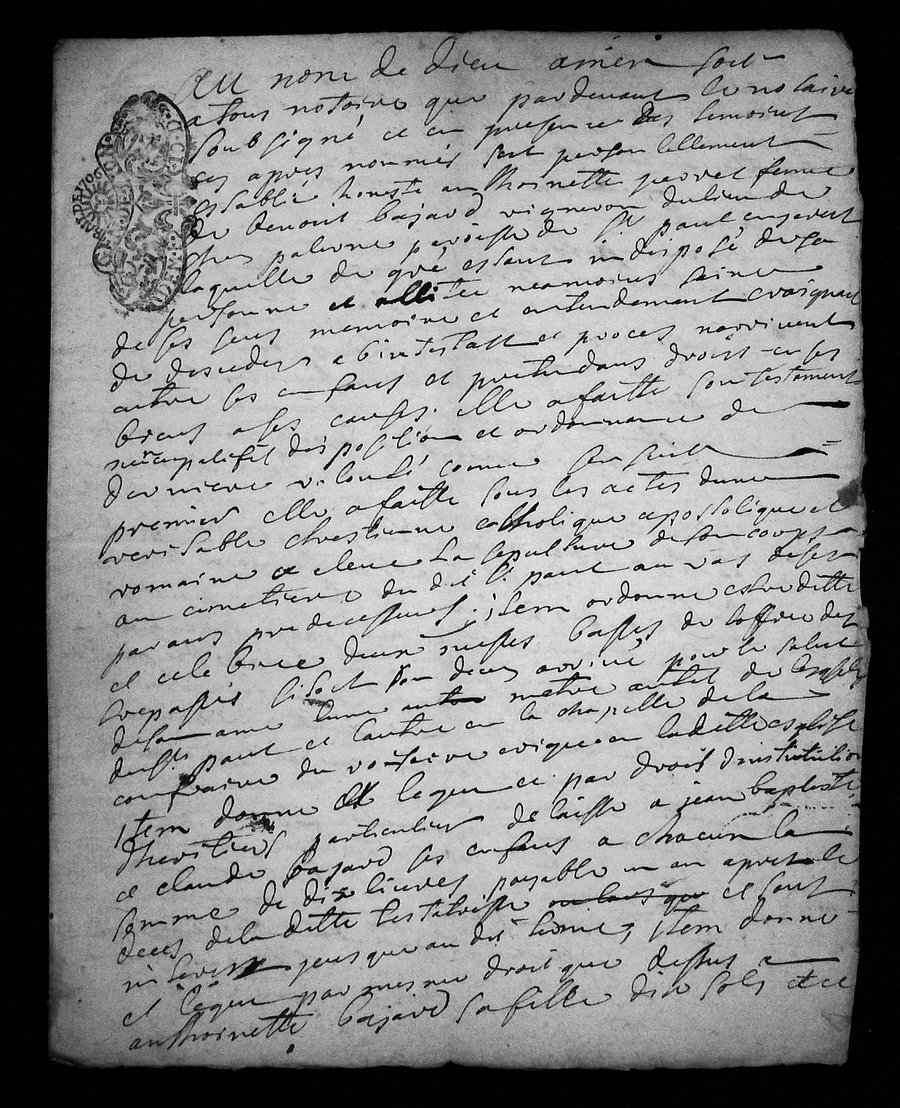 Au nom de dieu amen soit
a tous notoire que pardevant le notaire
soubsigné et en presence des temoins
cy apres nommés fut personnellement
establie honeste anthoinette perret femme
de benoit bajard vigneron du lieu de
palerne paroisse de St paul en jarest
laquelle de gré estant indisposé de sa
personne et allitée neamoins saine
de ses sens memoire et entendement craignant
de desceder abintestatt et proces narrivent
entre ses enfans et pretendans droits en ses
biens a ses causes. elle a faitte son testament
nuncupatif et disposition et ordonnance de
derniere volonté comme sensuit
premier elle a faitte tous les actes dune
veritable chrestienne catholique apostolique et
romaine a eleue la sepulture de son corps
au cimetiere du dit St paul au vas de ses
parans predecesseurs, item ordonne estre ditte
et celebrée deux messes basses de loffice des
trepassés sitost son deces arrivé pour le salut
de son ame lune au metre autel de leglise
dud St paul et lautre en la chapelle de la
confrairie du rosaire erigee en laditte esglise
Item donne et legue et par droit dinstitution
dheritiers particuliers delaisse a jean baptiste
et claude bajard ses enfans a chacun la
somme de dix livres payable un an apres le
deces de la ditte testatrisse et sant
interest jeusque au dit terme, Item donne
et legue par mesme droit que dessus a
anthoinette bajard sa fille dix sols et ce